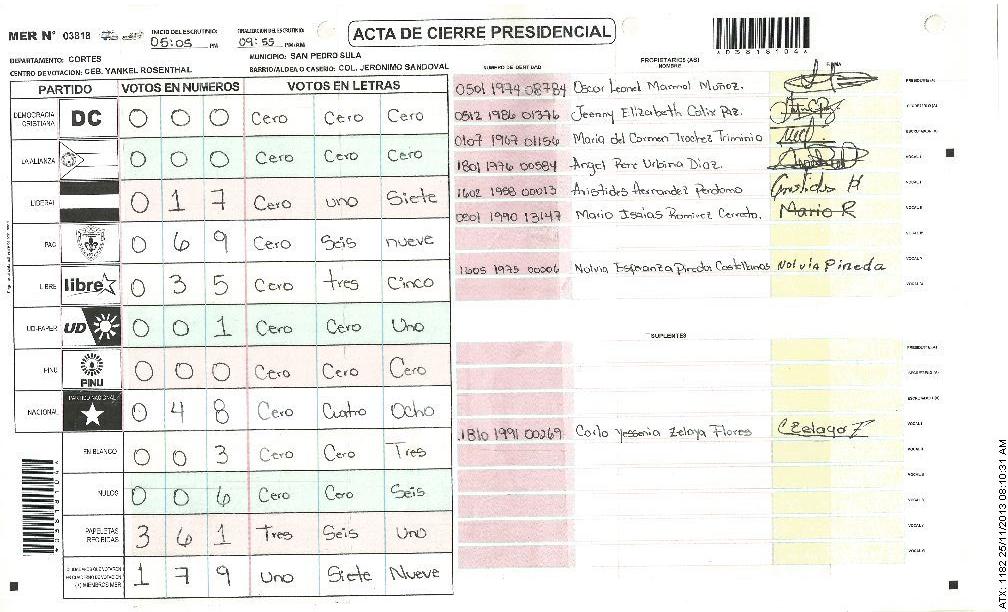 MER N° 03818
INICIO DEL ESCRUTINIO: 05:05 PM
FINALIZACION DEL ESCRUTINIO: 09:55 PM/AM
ACTA DE CIERRE PRESIDENCIAL
*03818104*
DEPARTAMENTO: CORTES
MUNICIPIO: SAN PEDRO SULA
CENTRO DE VOTACION: CEB. YANKEL ROSENTHAL
BARRIO/ALDEA O CASERIO: COL. JERONIMO SANDOVAL
PARTIDO VOTOS EN NUMEROS VOTOS EN LETRAS
DEMOCRACIA CRISTIANA DC 0 0 0 Cero Cero Cero
LA ALIANZA 0 0 0 Cero Cero Cero
LIBERAL 0 1 7 Cero uno Siete
PAC 0 6 9 Cero Seis nueve
LIBRE libre 0 3 5 Cero tres Cinco
UD-FAPER UD 0 0 1 Cero Cero Uno
PINU PINU 0 0 0 Cero Cero Cero
NACIONAL PARTIDO NACIONAL 0 4 8 Cero Cuatro Ocho
EN BLANCO 0 0 3 Cero Cero Tres
NULOS 0 0 6 Cero Cero Seis
PAPELETAS RECIBIDAS 3 6 1 Tres Seis Uno
1 7 9 Uno Siete Nueve
NUMERO DE IDENTIDAD
PROPIETARIOS (AS)
NOMBRE
FIRMA
0501 1974 08784 Oscar Leonel Marmol Muñoz. PRESIDENTE (A)
0512 1986 01376 Jeenny Elizabeth Calix Paz. SECRETARIO (A)
0107 1967 01156 Maria del Carmen Trochez Triminio ESCRUTADOR (A)
1801 1976 00584 Angel Rene Urbina Diaz. VOCAL I
1602 1958 00013 Aristides Hernandez Perdomo Aristides H
0501 1990 13147 Mario Isaias Ramirez Cerrato. Mario R
1605 1975 00006 Nolvia Esperanza Pineda Castellanos Nolvia Pineda
SUPLENTES
PRESIDENTE (A)
SECRETARIO (A)
ESCRUTADOR (A)
1810 1991 00269 Carlo Yessenia Zelaya Flores CZelaya F VOCAL I
ATX: 1182 25/11/2013 08:10:31 AM